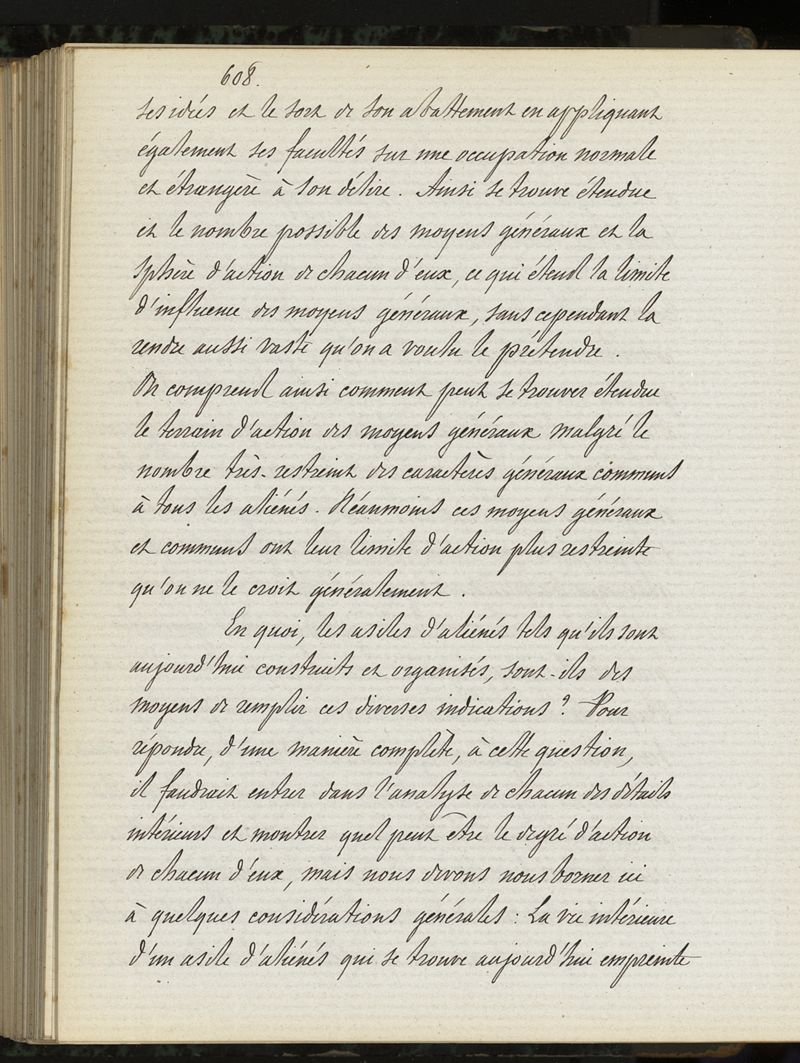 608.
ses idées et le sort de son abattement en appliquant
également ses facultés sur une occupation normale
et étrangère à son délire. Ainsi se trouve étendue
et le nombre possible des moyens généraux et la
sphère d'action de chacun d'eux, ce qui étend la limite
d'influence des moyens généraux, sans cependant la
rendre aussi vaste qu'on a voulu le prétendre.
On comprend ainsi comment peut se trouver étendue
le terrain d'action des moyens généraux malgré le
nombre très-restreint des caractères généraux communs
à tous les aliénés. Néanmoins ces moyens généraux
et communs ont leur limite d'action plus restreinte
qu'on ne le croit généralement.
En quoi, les asiles d'aliénés tels qu'ils sont
aujourd'hui construits et organisés, sont-ils des
moyens de remplir ces diverses indications? Pour
répondre, d'une manière complète, à cette question,
il faudrait entrer dans l'analyse de chacun des détails
intérieurs et montrer quel peut être le degré d'action
de chacun d'eux, mais nous devons nous borner ici
à quelques considérations générales: La vie intérieure
d'un asile d'aliénés qui se trouve aujourd'hui empreinte